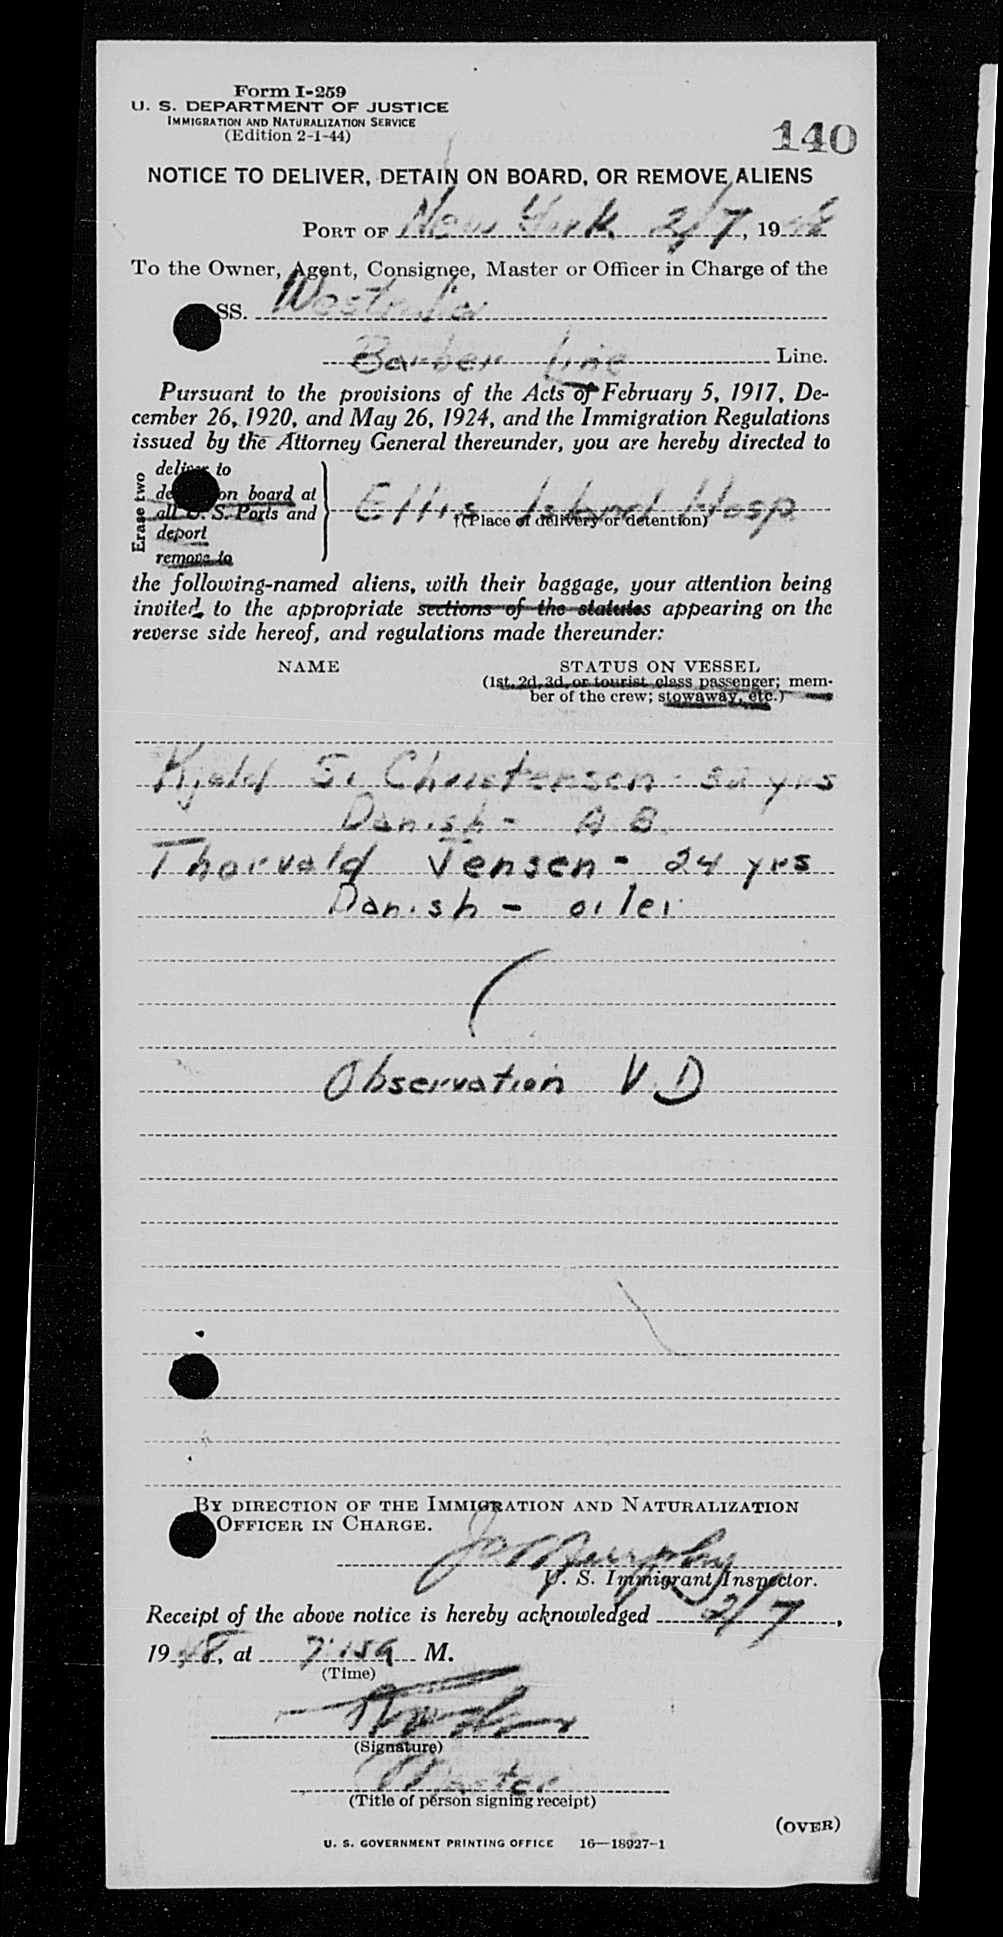 Form I-259
U. S. DEPARTMENT OF JUSTICE
IMMIGRATION AND NATURALIZATION SERVICE
(Edition 2-1-44)
140
NOTICE TO DELIVER, DETAIN ON BOARD, OR REMOVE ALIENS
PORT OF New York 2/7, 1948
To the Owner, Agent, Consignee, Master or Officer in Charge of the
SS. Westralia
Barber Line Line.
Pursuant to the provisions of the Acts of February 5, 1917, De-
cember 26, 1920, and May 26, 1924, and the Immigration Regulations
issued by the Attorney General thereunder, you are hereby directed to
Erase two
deliver to
on board at
all U. S. Ports and
deport
remove to
Ellis Island Hosp
(Place of delivery or detention)
the following-named aliens, with their baggage, your attention being
invited to the appropriate sections of the statutes appearing on the
reverse side hereof, and regulations made thereunder:
NAME STATUS ON VESSEL
(1st, 2d, 3d, or tourist class passenger; mem-
ber of the crew; stowaway, etc.)
Kjeld S. Christensen - 32 yrs
Danish - A B
Thorvald Jensen - 24 yrs
Danish - oiler
Observation V. D
BY DIRECTION OF THE IMMIGRATION AND NATURALIZATION
OFFICER IN CHARGE.
Murphy
U. S. Immigrant Inspector.
Receipt of the above notice is hereby acknowledged 2/7,
1948, at 7:15 a M.
(Time)
(Signature)
Master
(Title of person signing receipt)
(OVER)
U. S. GOVERNMENT PRINTING OFFICE 16—18927-1